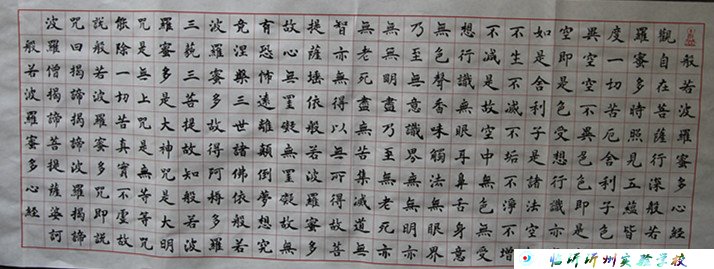 般若波羅蜜多心經
觀自在菩薩行深般若
羅蜜多時照見五蘊皆
度一切苦厄舍利子色
異空空不異色色即是
空即是色受想行識亦
如是舍利子是諸法空
不生不滅不垢不淨不增
不減是故空中無色無受
想行識無眼耳鼻舌身意
無色聲香味觸法無眼界
乃至無意識界無無明亦
無無明盡乃至無老死亦
無老死盡無苦集滅道無
智亦無得以無所得故菩
提薩埵依般若波羅蜜多
故心無罣礙無罣礙故無
有恐怖遠離顛倒夢想究
竟涅槃三世諸佛依般若
波羅蜜多故得阿耨多羅
三藐三菩提故知般若波
羅蜜多是大神咒是大明
咒是無上咒是無等等咒
能除一切苦真實不虛故
說般若波羅蜜多咒即說
咒曰揭諦揭諦波羅揭諦
波羅僧揭諦菩提薩婆訶
般若波羅蜜多心經
临沂沂州实验学校